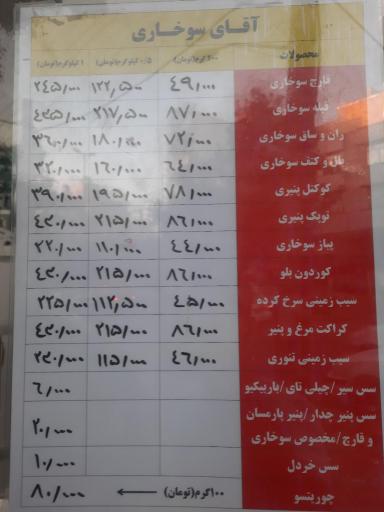 آقای سوخاری
محصولات ۲۰۰ گرم(تومان) ۰/۵ کیلوگرم(تومان) ۱ کیلوگرم(تومان)
قارچ سوخاری ۴۹/۰۰۰ ۱۲۲/۵۰۰ ۲۴۵/۰۰۰
فیله سوخاری ۸۷/۰۰۰ ۲۱۷/۵۰۰ ۴۳۵/۰۰۰
ران و ساق سوخاری ۷۲/۰۰۰ ۱۸۰/۰۰۰ ۳۶۰/۰۰۰
بال و کتف سوخاری ۶۴/۰۰۰ ۱۶۰/۰۰۰ ۳۲۰/۰۰۰
کوکتل پنیری ۷۸/۰۰۰ ۱۹۵/۰۰۰ ۳۹۰/۰۰۰
توپک پنیری ۸۶/۰۰۰ ۲۱۵/۰۰۰ ۴۳۰/۰۰۰
پیاز سوخاری ۴۴/۰۰۰ ۱۱۰/۰۰۰ ۲۲۰/۰۰۰
کوردون بلو ۸۶/۰۰۰ ۲۱۵/۰۰۰ ۴۳۰/۰۰۰
سیب زمینی سرخ کرده ۴۵/۰۰۰ ۱۱۲/۵۰۰ ۲۲۵/۰۰۰
کراکت مرغ و پنیر ۸۶/۰۰۰ ۲۱۵/۰۰۰ ۴۳۰/۰۰۰
سیب زمینی تنوری ۴۶/۰۰۰ ۱۱۵/۰۰۰ ۲۳۰/۰۰۰
سس سیر/چیلی تای/باربیکیو ۶/۰۰۰
سس پنیر چدار/پنیر پارمسان
و قارچ/مخصوص سوخاری ۲۰/۰۰۰
سس خردل ۱۰/۰۰۰
چوریتسو ۱۰۰گرم(تومان) ← ۸۰/۰۰۰